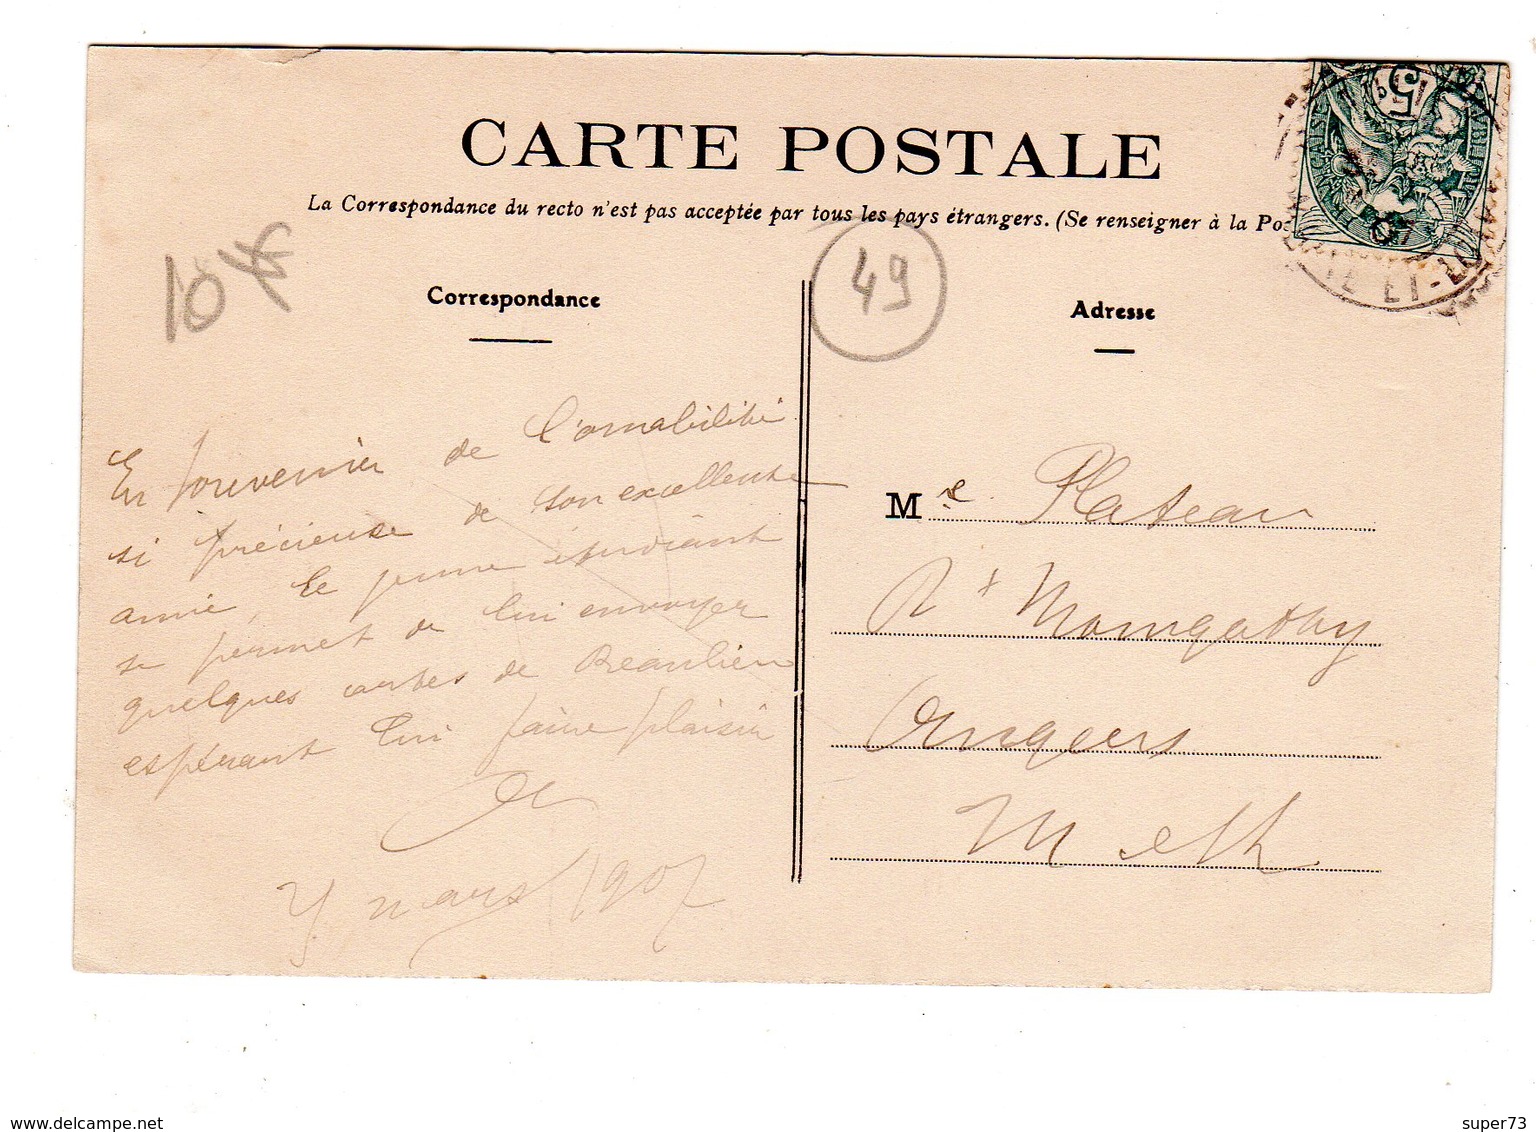 CARTE POSTALE
La Correspondance du recto n'est pas acceptée par tous les pays étrangers. (Se renseigner à la Pos
10
49
Correspondance
Adresse
En souvenir de l'amabilité
si précieuse de son excellente
amie, le jeune étudiant
se permet de lui envoyer
quelques cartes de Beaulieu
espérant lui faire plaisir
mars 1907
Me Plateau
R
Angers
M et L
5
07
www.delcampe.net
super73